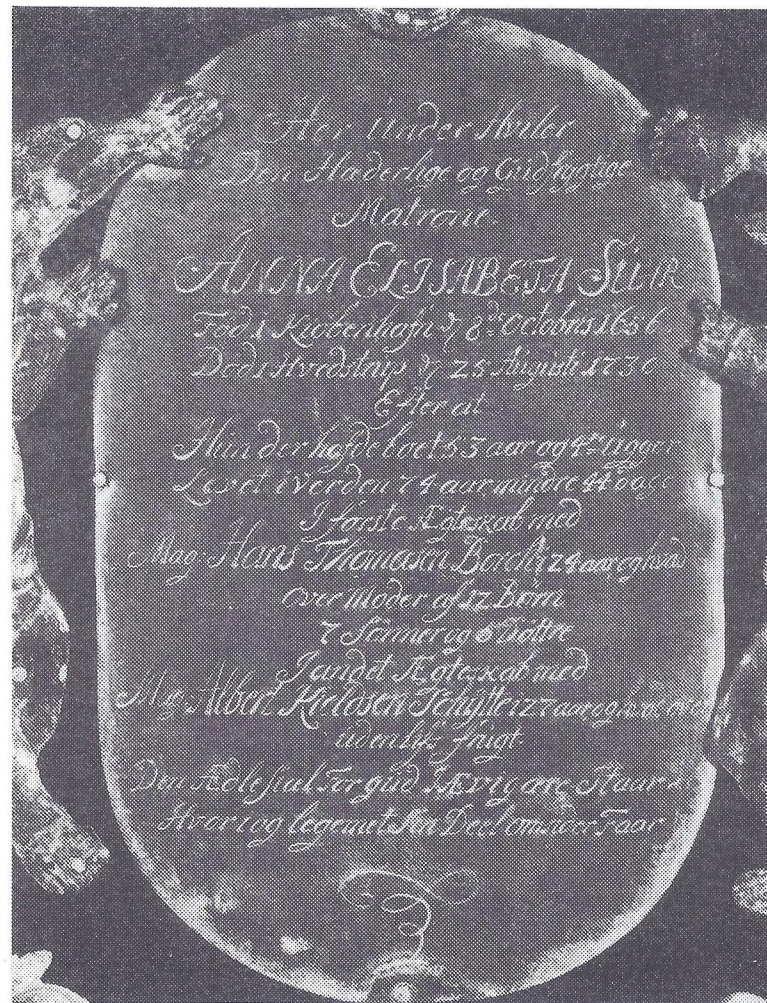 Her Under Hviler
Den Hæderlige og Gudfrygtige
Matrone
ANNA ELISABETA SÜHR
Fød i Kiøbenhafn d 8de Octobris 1656
Død i Hvedstrup d 25 Augusti 1730
Efter at
Hun der hafde boet 53 aar og 4re uger
Levet i Verden 74 aar mindre 44 dage
I første Ægteskab med
Mag. Hans Thomæsen Borch i 24 aar og hvad
over Moder af 12 Børn
7 Sønner og 5 Døttre
I andet Ægteskab med
Mag. Albert Kieldsen Schytte i 27 aar og hvad
uden lifs frugt
Den Ædle Siæl for gud Ævig ære
Hvor i og legemet Sin Deel omsider Faar